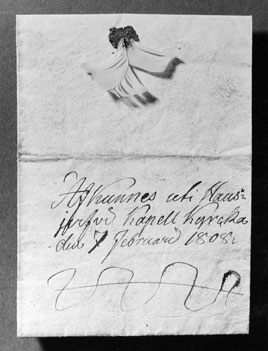 Afkunnes uti Haus=
jerfvo Kapell Kyrcka
den 7 Februarii 1808.